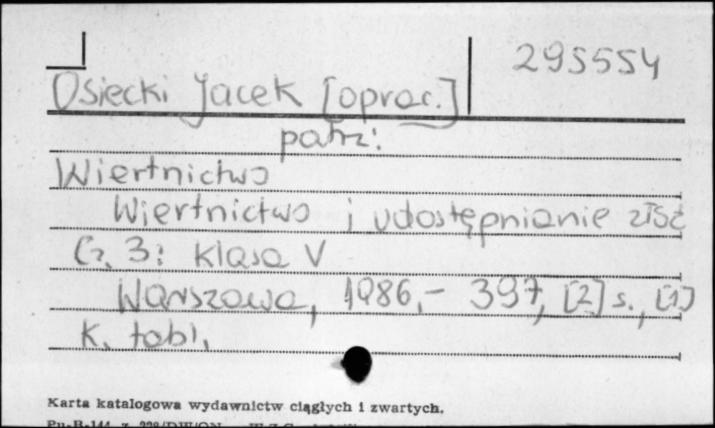 295554
Osiecki Jacek [oprac.]
patrz:
Wiertnictwo
Wiertnictwo i udostępnianie złóż
Cz. 3: klasa V
Warszawa, 1986, - 397, [2] s., [1]
k. tabl.
Karta katalogowa wydawnictw ciągłych i zwartych.
Pu-B-144 z.